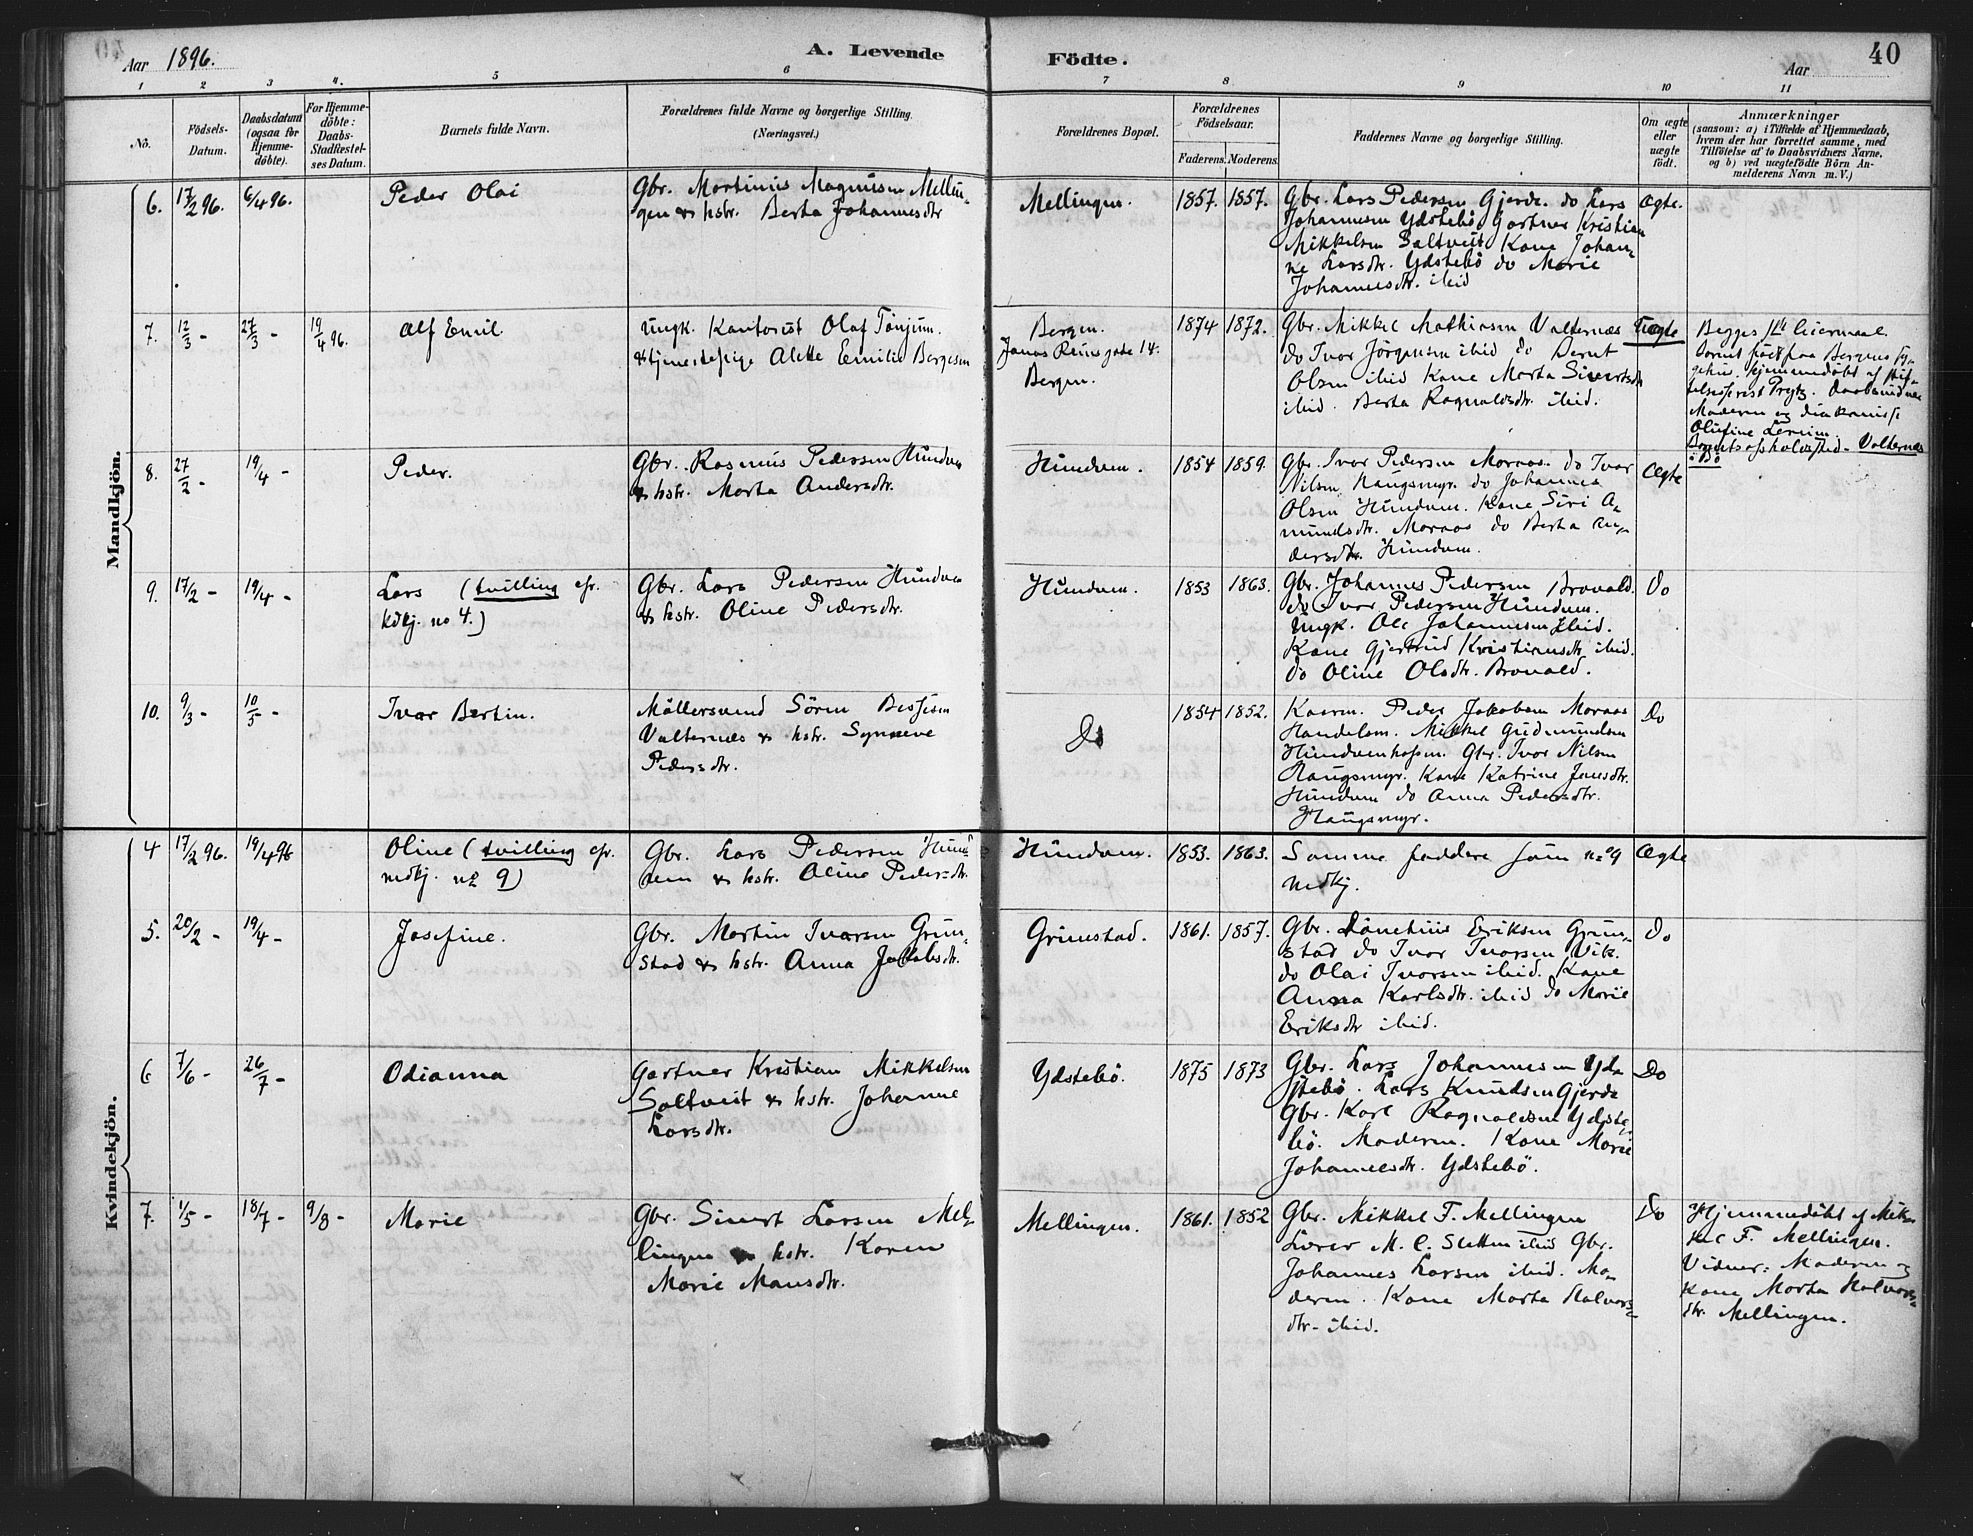 Aar 1896.
A. Levende
Födte.
Aar
40
1 2 3 4. 5 6 7 8 9 10 11
No.
Födsels-
Datum.
Daabsdatum
(ogsaa for
Hjemme-
döbte).
For Hjemme-
döbte:
Daabs-
Stadfæstel-
ses Datum.
Barnets fulde Navn.
Forældrenes fulde Navne og borgerlige Stilling.
(Næringsvei.)
Forældrenes Bopæl.
Forældrenes
Födselsaar.
Faderens. Moderens.
Faddernes Navne og borgerlige Stilling.
Om ægte
eller
uægte
födt.
Anmærkninger
(saasom: a) i Tilfælde af Hjemmedaab,
hvem der har forrettet samme, med
Tilföielse af to Daabsvidners Navne,
og b) ved uægtefödte Börn An-
melderens Navn m. V.)
Mandkjön.
6. 17/2 96. 6/4 96.
Peder Olai
Gbr. Martinus Magnusen Mellin-
gen & hstr. Berta Johannesdtr
Mellingen.
1857. 1857.
Gbr. Lars Pedersen Gjerde. do Lars
Johannesen Ydstebö Gartner Kristian
Mikkelsen Saltveit Kone Johan-
ne Larsdtr. Ydstebö do Marie
Johannesdtr. ibid
Ægte.
7. 12/3 - 27/3 - 19/4 96.
Alf Emil
Ungk. Kontorist Olaf Tönjum.
& tjenestepige Alette Emilie Bergesen
Bergen.
Jonas Reinsgade 14.
Bergen.
1874 1872.
Gbr. Mikkel Mathiasen Valternæs
do Ivar Jörgensen ibid do Bernt
Olsen ibid Kone Marta Sivertsdtr
ibid. Berta Ragnaldsdtr. ibid.
Uægte
Begges 1ste leiermaal.
Barnet födt paa Bergens Sy-
gehus, hjemmedöbt af stif-
telsesprest Preytz. Daabsvidner
Moderen og diakonisse
Olufine Lereim.
Barnets opholdssted - Valternæs
i Bö
8. 27/2 - 19/4 -
Peder.
Gbr. Rasmus Pedersen Hundven
& hstr. Marta Andersdtr.
Hundven.
1854 1859.
Gbr. Ivar Pedersen Moraas. do Ivar
Nilsen Haugsmyr. do Johannes
Olsen Hundven. Kone Siri A-
mundsdtr. Moraas do Berta An-
dersdtr. Hundven.
Ægte
9. 17/2 - 19/4 -
Lars (tvilling cfr.
kvkj. no 4.)
Gbr. Lars Pedersen Hundven
& hstr. Oline Pedersdtr.
Hundven.
1853 1863.
Gbr. Johannes Pedersen Brovold.
do Ivar Pedersen Hundven.
Ungk. Ole Johannesen ibid.
Kone Gjertrud Kristiansdtr ibid.
do Oline Olsdtr. Brovold.
Do
10. 9/3 - 10/5 -
Ivar Bertin.
Möllersvend Sören
Valternæs & hstr. Synneve
Pedersdtr.
Do
1854 1852.
Kaarm. Peder Jakobsen Moraas
Handelsm. Mikkel Gudmundsen
Gbr. Ivar Nilsen
Haugsmyr. Kone Katrine Jensdtr.
Hundven do Anna Pedersdtr.
Haugsmyr.
Do
Kvindekjön.
4 17/2 96. 19/4 96
Oline (tvilling cfr.
mdkj. no 9)
Gbr. Lars Pedersen Hund-
ven & hstr. Oline Pedersdtr.
Hundven.
1853. 1863.
Samme faddere som no 9
mdkj.
Ægte
5. 20/2 - 19/4 -
Josefine.
Gbr. Martin Ivarsen Grim-
stad & hstr. Anna Jakobsdtr.
Grimstad.
1861. 1857.
Gbr. Eriksen Grim-
stad do Ivar Ivarsen Vik.
do Olai Ivarsen ibid. Kone
Anna Karlsdtr. ibid do Marie
Eriksdtr ibid.
Do
6 7/6 - 26/7 -
Odianna
Gartner Kristian Mikkelsen
Saltveit & hstr. Johanne
Larsdtr.
Ydstebö.
1875 1873
Gbr. Lars Johannesen Yd-
stebö. Lars Knudsen Gjerde
Gbr. Karl Ragnaldsen Ydste-
bö. Moderen. Kone Marie
Johannesdtr. Ydstebö.
Do
7. 1/5 - 18/7 - 9/8 -
Marie
Gbr. Sivert Larsen Mel-
lingen & hstr. Karen
Marie Monsdtr.
Mellingen.
1861. 1852
Gbr. Mikkel F. Mellingen
Lærer M. C. Sletten ibid Gbr.
Johannes Larsen ibid. Mo-
deren. Kone Marta Halvors-
dtr. ibid.
Do
Hjemmedöbt af Mik-
kel F. Mellingen.
Vidner: Moderen og
Kone Marta Halvors-
dtr. Mellingen.